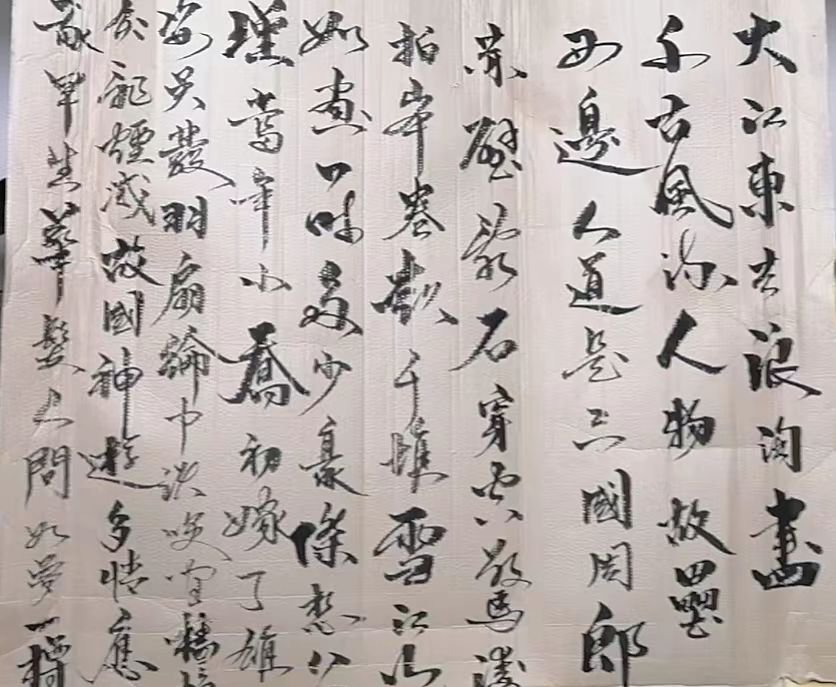 大江東去浪淘盡
千古風流人物故壘
西邊人道是三國周郎
赤壁亂石穿空驚濤
拍岸卷起千堆雪江山
如畫一時多少豪傑想公
瑾當年小喬初嫁了雄
姿英發羽扇綸巾談笑間檣櫓
灰飛煙滅故國神遊多情應
我早生華髮人間如夢一樽